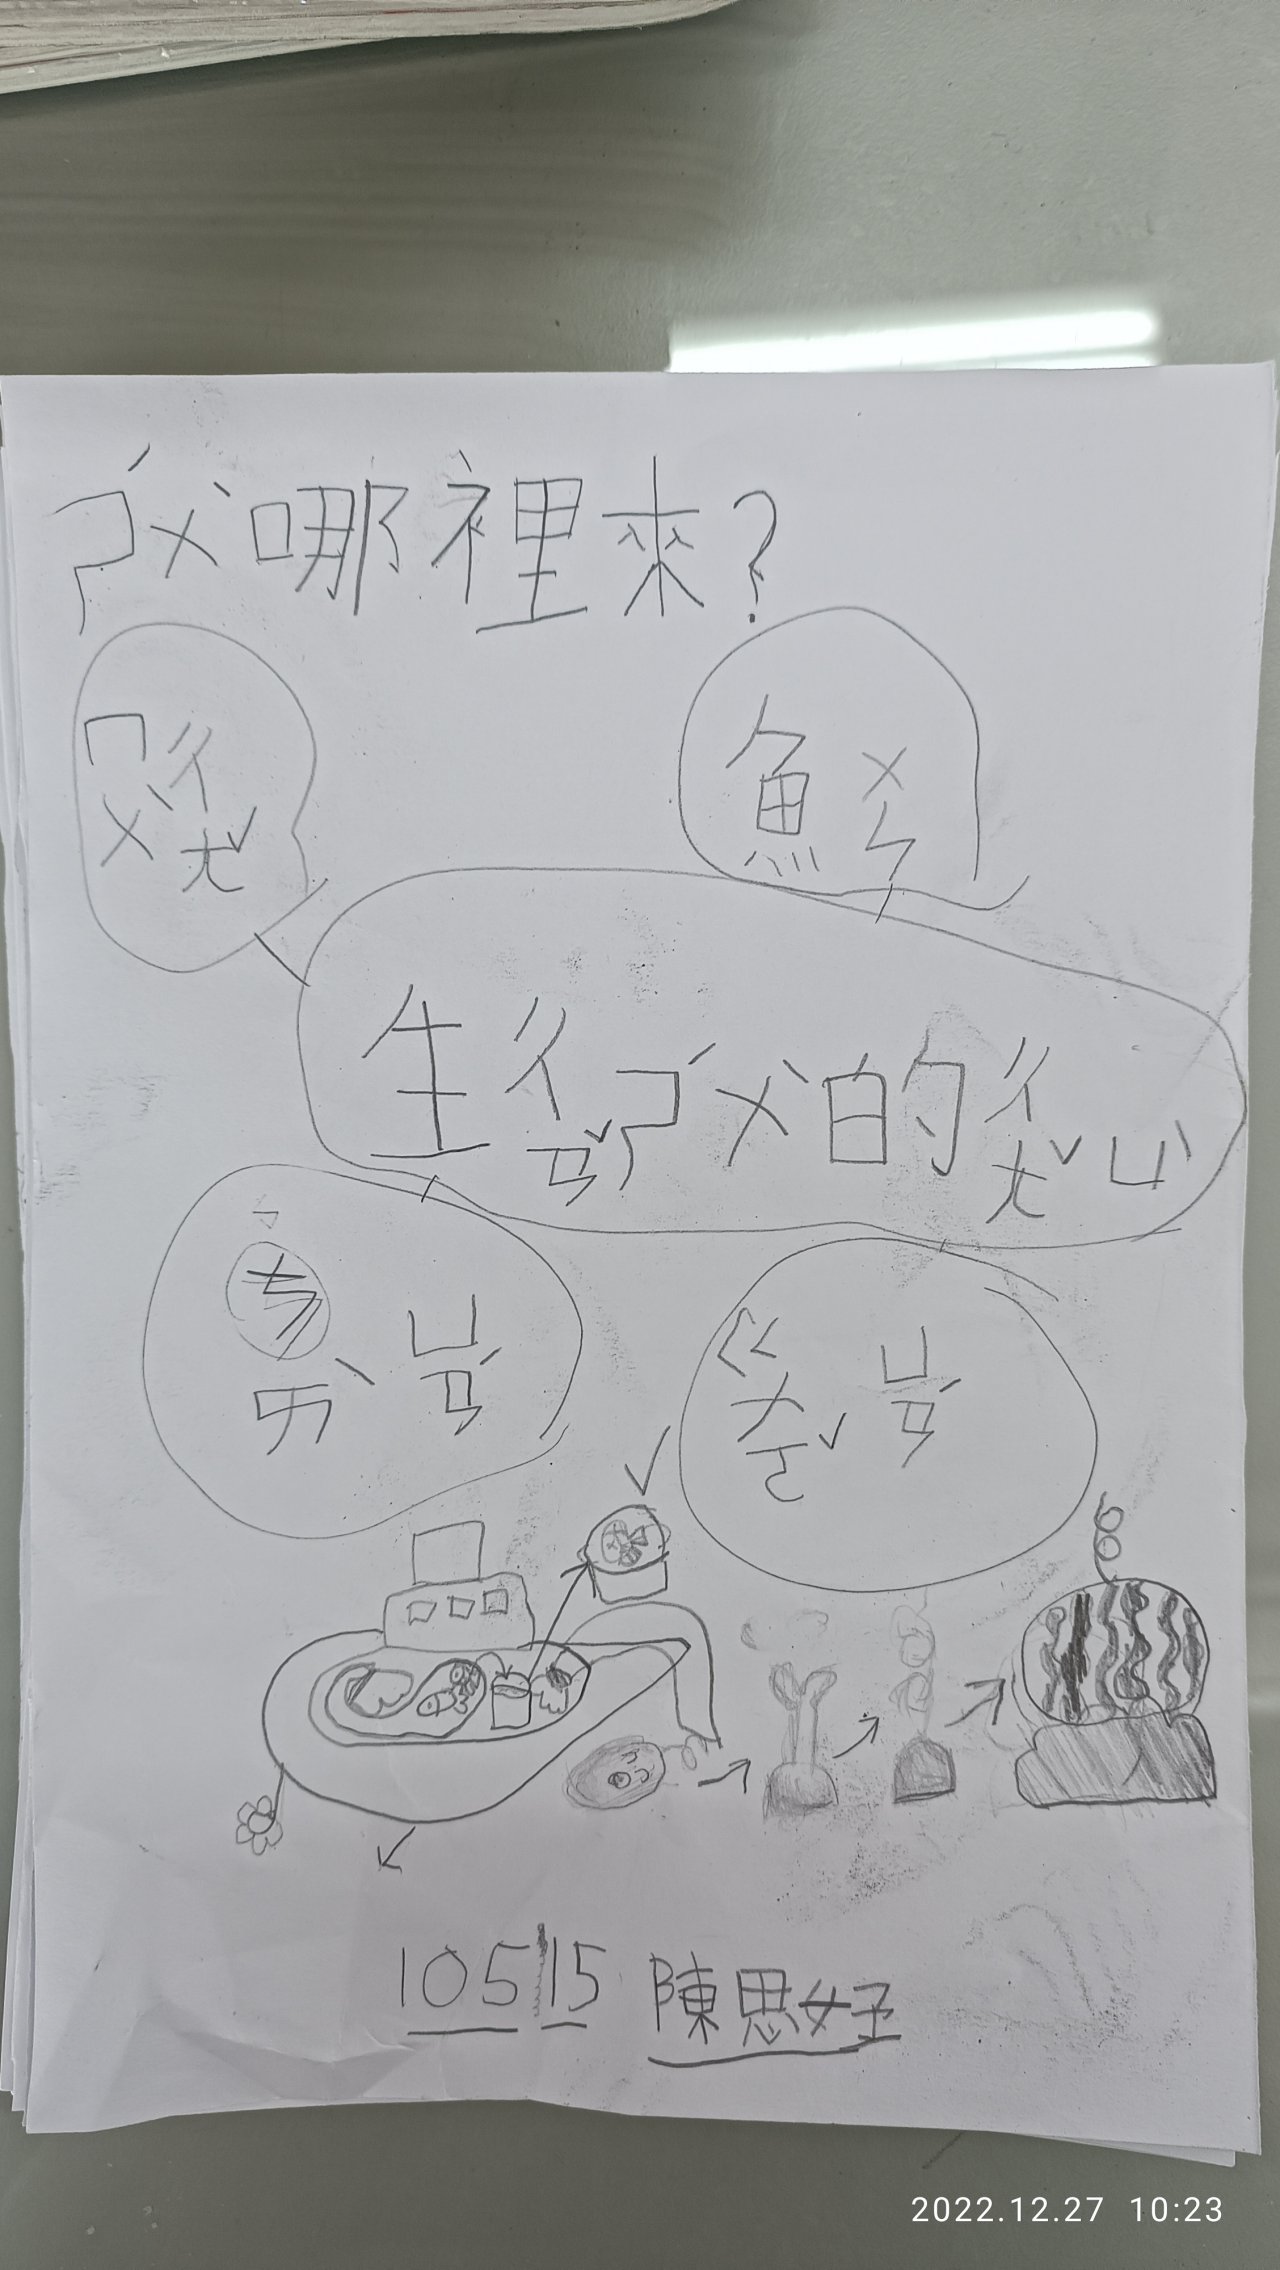 ㄕˊㄨˋ哪裡來?
ㄇㄨˋㄔㄤˇ
魚ㄨㄣ
生ㄔㄢˇㄕˊㄨˋ的ㄔㄤˇㄩˋ
ㄘㄞˋㄩㄢˊ
ㄍㄨㄛˇㄩㄢˊ
10515 陳思妤
2022.12.27 10:23